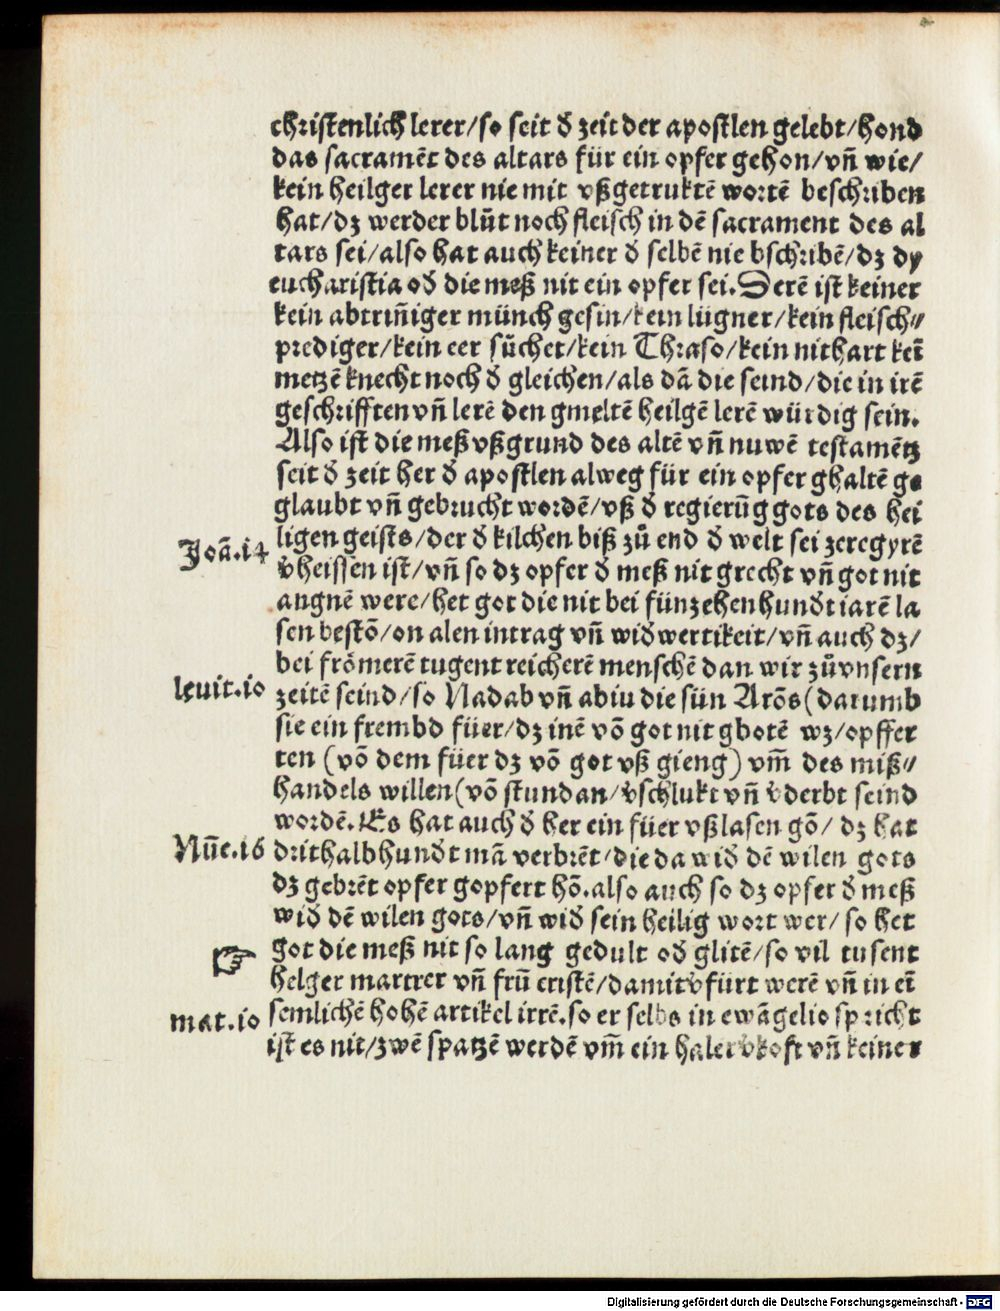 christenlich lerer/so seit d᷑ zeit der apostlen gelebt/hond
das sacramēt des altars für ein opfer gehon/vñ wie/
kein heilger lerer nie mit vßgetruktē wortē beschriben
hat/dz werder blůt noch fleisch in dē sacrament des al
tars sei/also hat auch keiner d᷑ selbē nie bschribē/dz dy
eucharistia od᷑ die meß nit ein opfer sei. Derē ist keiner
kein abtriñiger münch gesin/kein lügner/kein fleisch⸗
prediger/kein eer sůchet/kein Thraso/kein nithart keī
metzē knecht noch d᷑ gleichen/als dā die seind/die in irē
geschrifften vñ lerē den gmeltē heilgē lerē würdig sein.
Also ist die meß vß grund des altē vñ nuwē testamētz
seit d᷑ zeit her d᷑ apostlen alweg für ein opfer ghaltē ge
glaubt vñ gebrucht wordē/vß d᷑ regierūg gots des hei
Joā.14 ligen geists/der d᷑ kilchen biß zů end d᷑ welt sei zeregyrē
v᷑heissen ist/vñ so dz opfer d᷑ meß nit grecht vñ got nit
angnē were/het got die nit bei fünzehenhundt iarē la
sen bestō/on alen intrag vñ wid᷑wertikeit/vñ auch dz/
bei frōmerē tugentreicherē menschē dan wir zů vnsern
leuit.10 zeitē seind/so Nadab vñ abiu die sün Arōs (darumb
sie ein frembd füer/dz inē vō got nit gbotē wz/opffer
ten (vō dem füer dz vō got vß gieng) vm̄ des miß⸗
handels willen (vō stund an/v᷑schlukt vñ v᷑derbt seind
wordē. Es hat auch d᷑ her ein füer vßlasen gō/ dz hat
Nūe.16 drithalbhundt mā verbrēt/die da wid᷑ dē wilen gots
dz gebrēt opfer gopfert hō. also auch so dz opfer d᷑ meß
wid᷑ dē wilen gots/vñ wid᷑ sein heilig wort wer/ so het
☞ got die meß nit so lang gedult od᷑ glitē/so vil tusent
helger martrer vñ frū cristē/damit v᷑fürt werē vñ in eī
mat.10 semlichē hohē artikel irrē. so er selbs in ewāgelio spricht
ist es nit/zwē spatzē werdē vm̄ ein haler v᷑koft vñ keiner
Digitalisierung gefördert durch die Deutsche Forschungsgemeinschaft - DFG